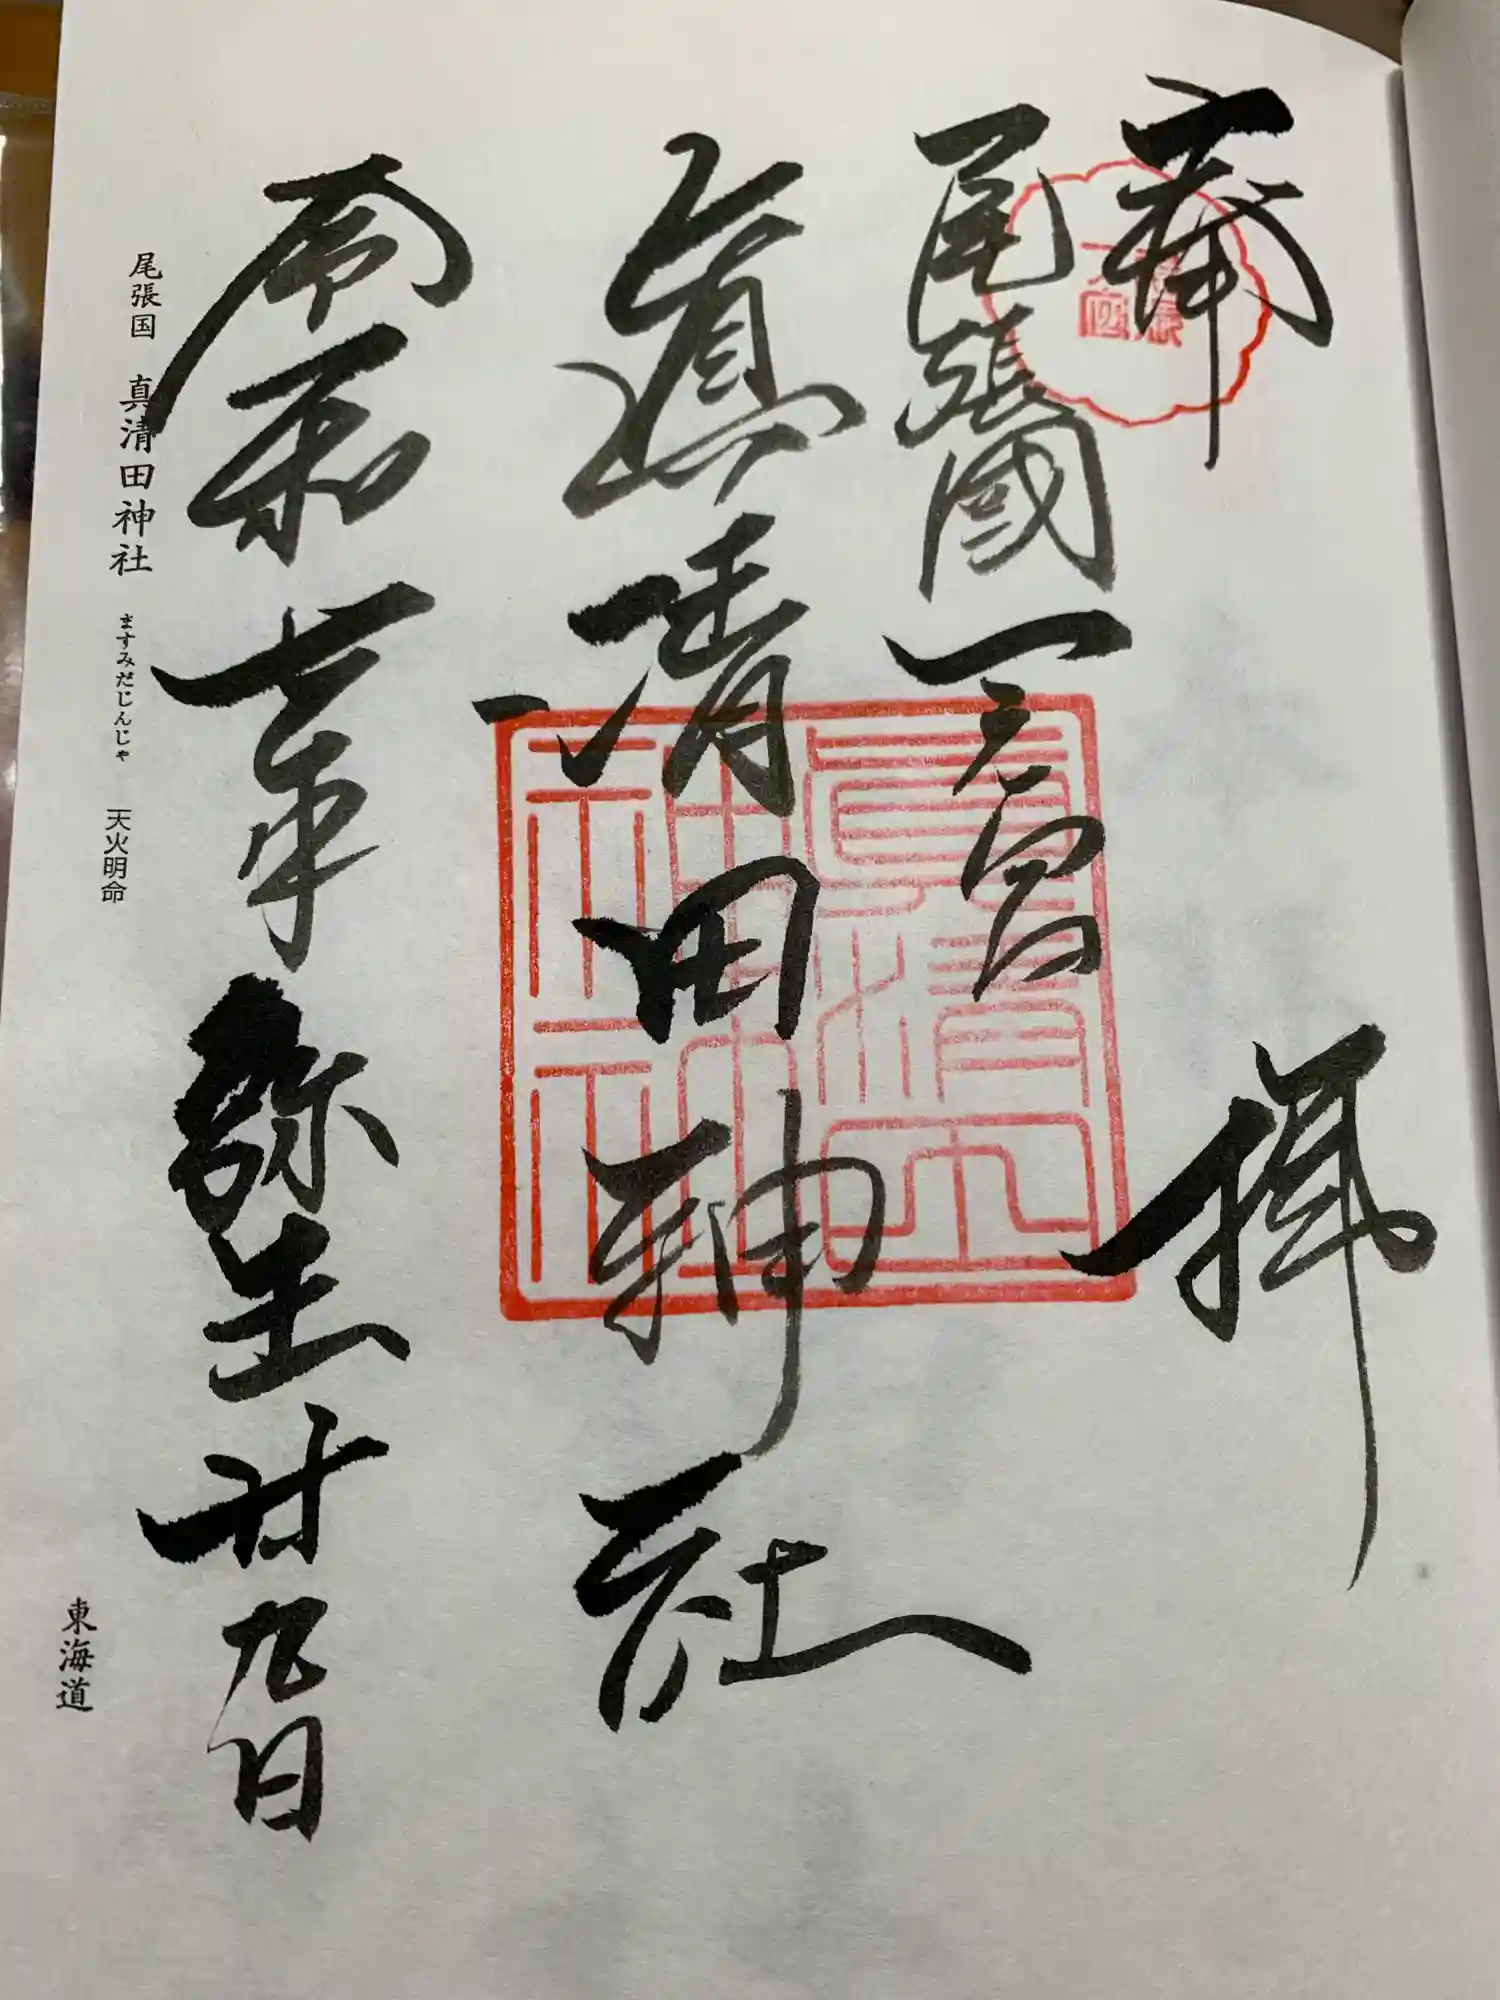 奉拝
尾張
一宮
尾張國一之宮
眞清田神社
眞清田
神社
令和七年弥生廿九日
尾張国 真清田神社 ますみだじんじゃ 天火明命
東海道